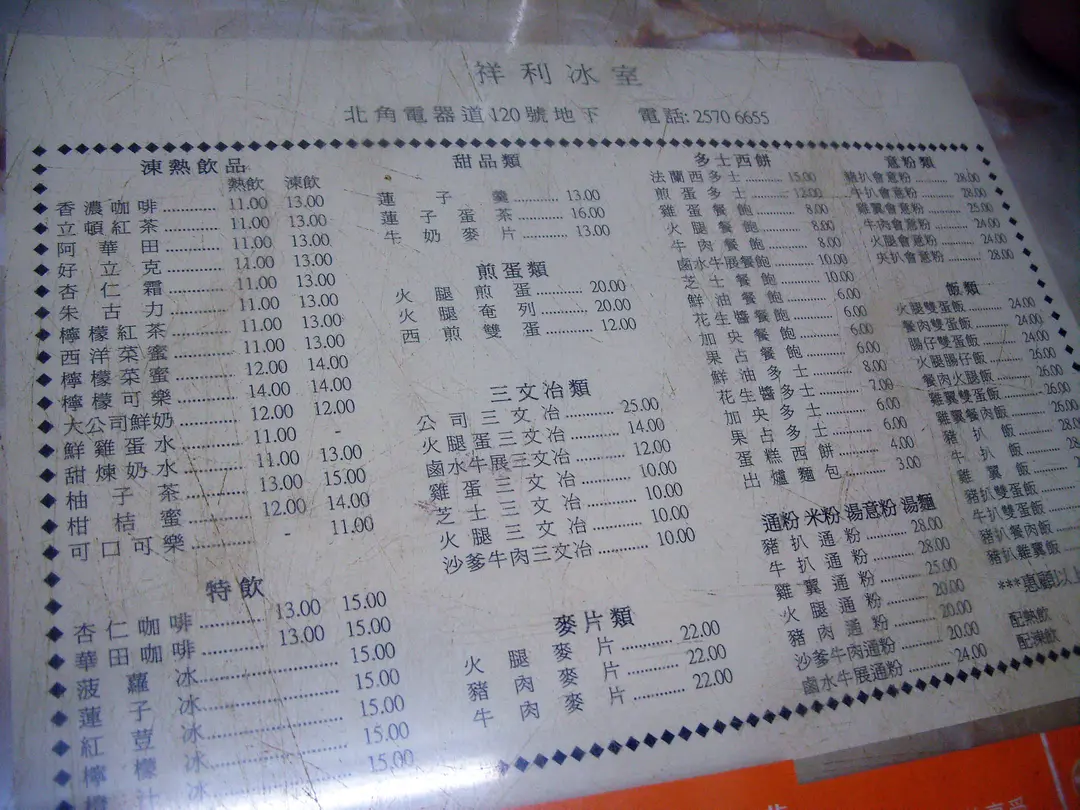 祥利冰室
北角電器道120號地下 電話: 2570 6655
涷熱飲品
熱飲 涷飲
香濃咖啡 11.00 13.00
立頓紅茶 11.00 13.00
阿華田 11.00 13.00
好立克 11.00 13.00
杏仁霜 11.00 13.00
朱古力 11.00 13.00
檸檬紅茶 11.00 13.00
西洋菜蜜 11.00 13.00
檸檬菜蜜 12.00 14.00
檸檬可樂 14.00 14.00
大公司鮮奶 12.00 12.00
鮮雞蛋水 11.00 -
甜煉奶水 11.00 13.00
柚子茶 13.00 15.00
柑桔蜜 12.00 14.00
可口可樂 - 11.00
特飲
杏仁咖啡 13.00 15.00
華田咖啡 13.00 15.00
菠蘿冰 15.00
蓮子冰 15.00
紅荳冰 15.00
檸檬冰 15.00
橙汁冰 15.00
甜品類
蓮子羹 13.00
蓮子蛋茶 16.00
牛奶麥片 13.00
煎蛋類
火腿煎蛋 20.00
火腿奄列 20.00
西煎雙蛋 12.00
三文冶類
公司三文冶 25.00
火腿蛋三文冶 14.00
鹵水牛展三文冶 12.00
雞蛋三文冶 10.00
芝士三文冶 10.00
火腿三文冶 10.00
沙爹牛肉三文冶 10.00
麥片類
火腿麥片 22.00
豬肉麥片 22.00
牛肉麥片 22.00
多士西餅
法蘭西多士 15.00
煎蛋多士 12.00
雞蛋餐飽 8.00
火腿餐飽 8.00
牛肉餐飽 8.00
鹵水牛展餐飽 10.00
芝士餐飽 10.00
鮮油餐飽 6.00
花生醬餐飽 6.00
加央餐飽 6.00
果占餐飽 6.00
鮮油多士 8.00
花生醬多士 7.00
加央多士 6.00
果占多士 6.00
蛋糕西餅 4.00
出爐麵包 3.00
通粉 米粉 湯意粉 湯麵
豬扒通粉 28.00
牛扒通粉 28.00
雞翼通粉 25.00
火腿通粉 20.00
豬肉通粉 20.00
沙爹牛肉通粉 20.00
鹵水牛展通粉 24.00
意粉類
豬扒會意粉 28.00
牛扒會意粉 28.00
雞翼會意粉 25.00
牛肉會意粉 24.00
火腿會意粉 24.00
央扒會意粉 28.00
飯類
火腿雙蛋飯 24.00
餐肉雙蛋飯 24.00
腸仔雙蛋飯 24.00
火腿腸仔飯 26.00
餐肉火腿飯 26.00
雞翼雙蛋飯 26.00
雞翼餐肉飯 26.00
豬扒飯 28.0
牛扒飯 28
雞翼飯
豬扒雙蛋飯
牛扒雙蛋飯
豬扒餐肉飯
豬扒雞翼飯
***惠顧以上
配熱飲
配涷飲